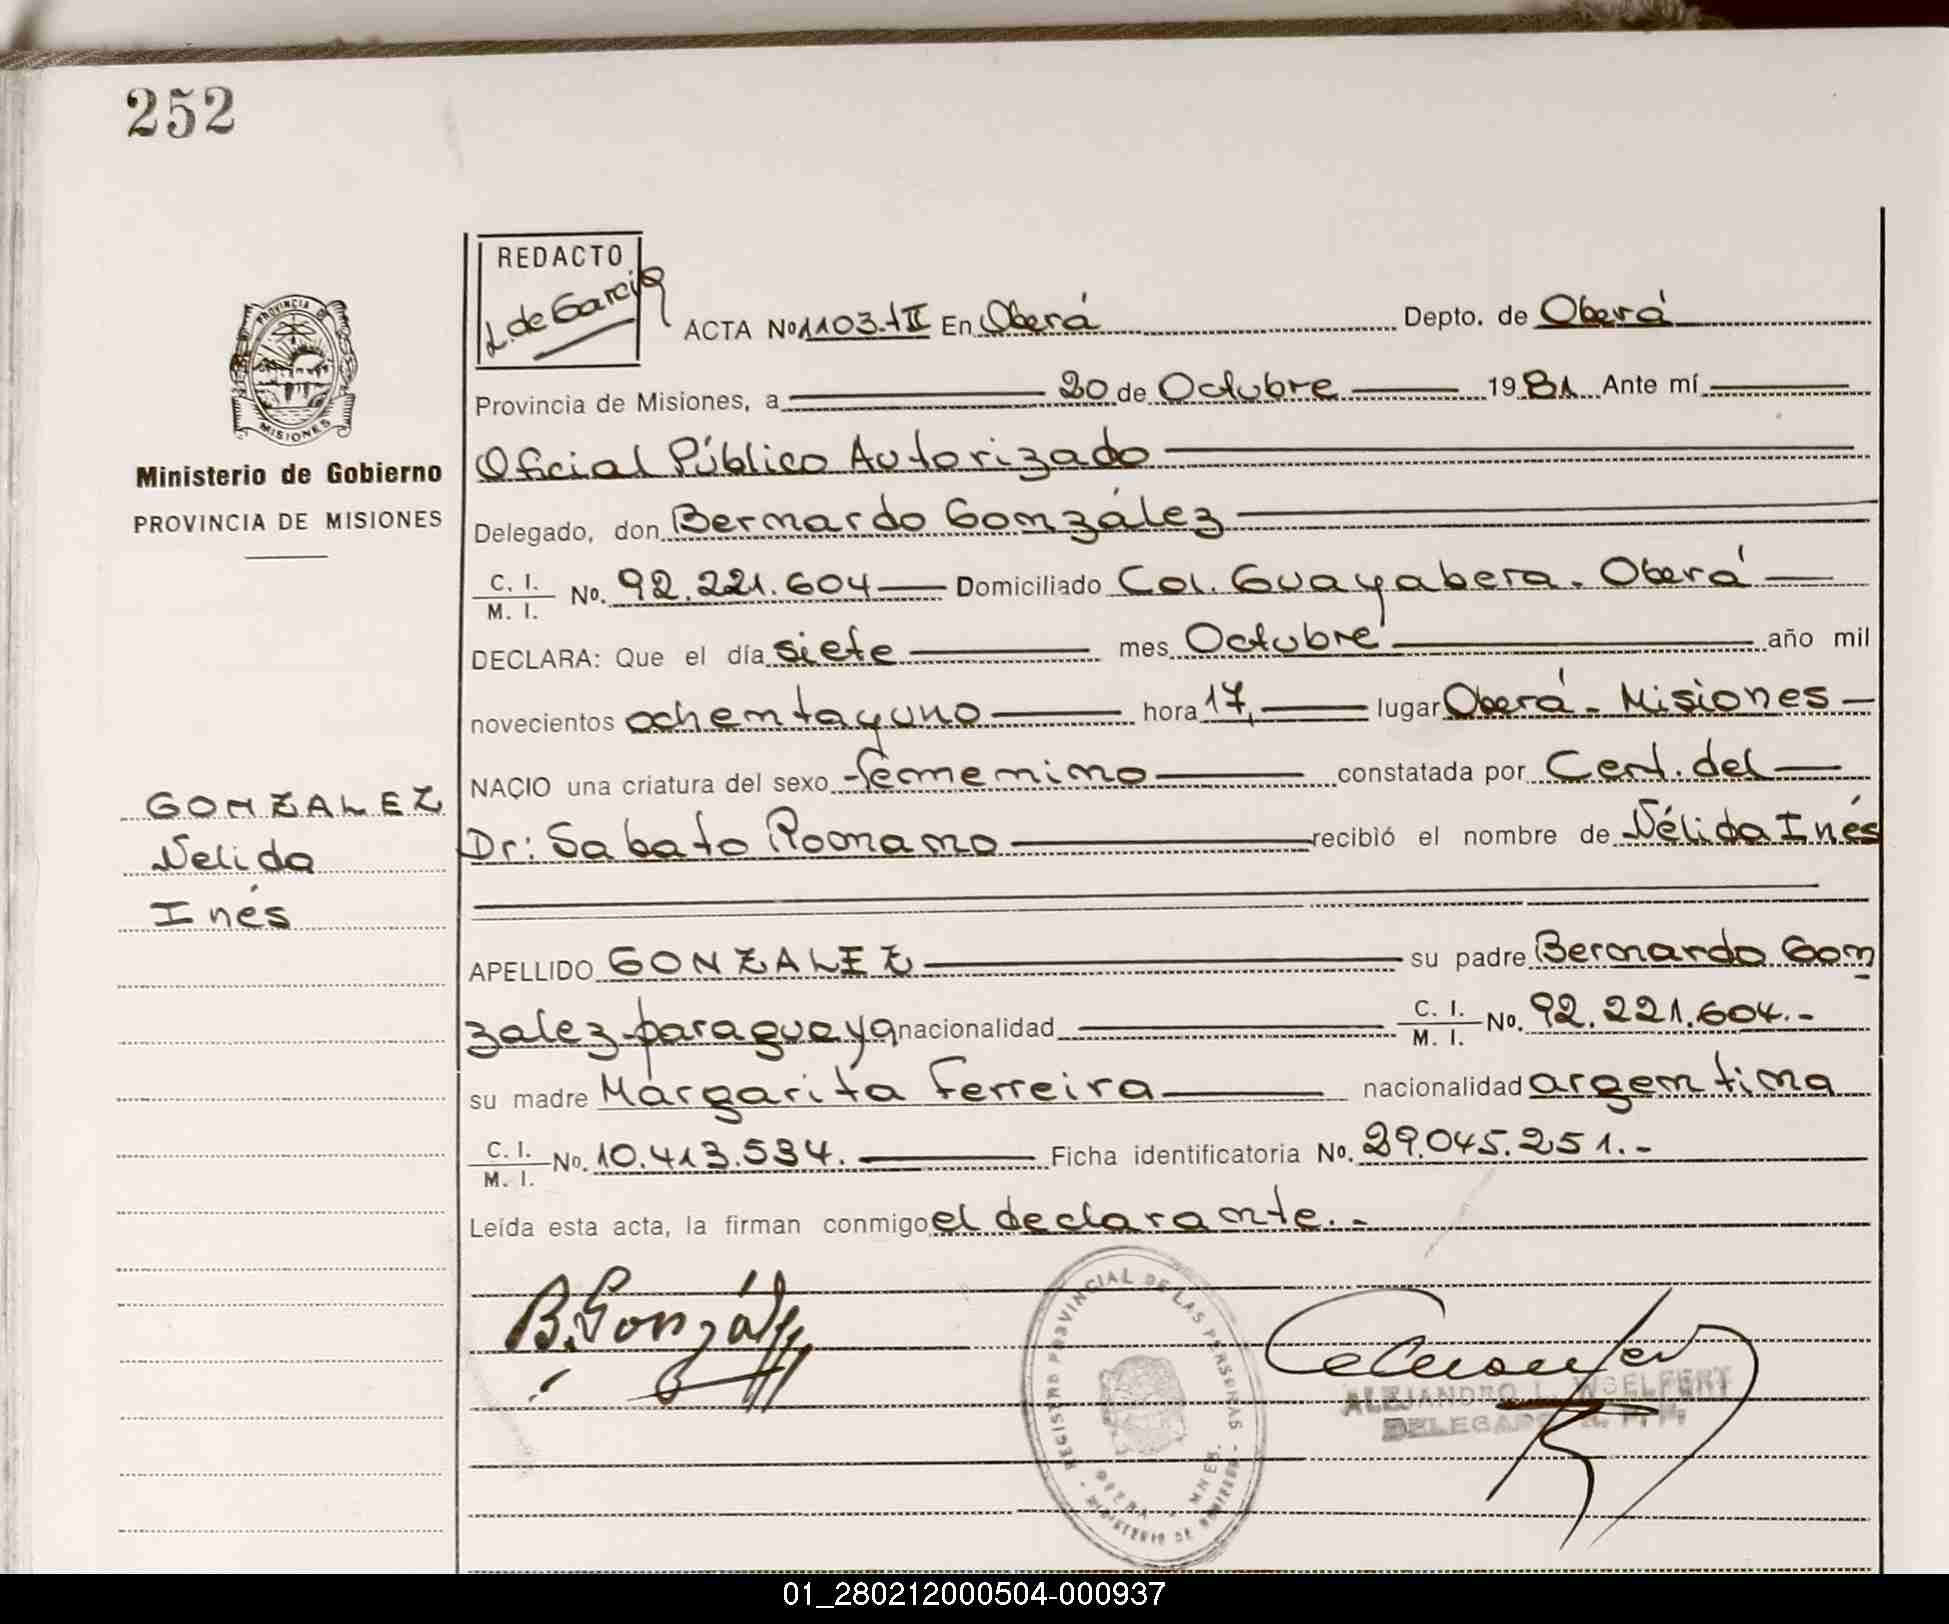 252
REDACTO
L. de Garcia
PROVINCIA DE
MISIONES
ACTA No 1103-tII En Oberá Depto. de Oberá
Provincia de Misiones, a 20 de Octubre 1981 Ante mí
Ministerio de Gobierno
PROVINCIA DE MISIONES
Oficial Público Autorizado
Delegado, don Bernardo González
C. I. M. I. No. 92.221.604 Domiciliado Col. Guayabera. Oberá
DECLARA: Que el día siete mes Octubre año mil
novecientos ochentayuno hora 17, lugar Oberá - Misiones
NACIO una criatura del sexo femenino constatada por Cert. del
GONZALEZ
Nelida
Inés
Dr: Sabato Romano recibió el nombre de Nélida Inés
APELLIDO GONZALEZ su padre Bernardo Gon
zalez paraguaya nacionalidad C. I. M. I. No. 92.221.604.-
su madre Margarita Ferreira nacionalidad argentina
C. I. M. I. No. 10.413.534. Ficha identificatoria No. 29.045.251.-
Leída esta acta, la firman conmigo el declarante.-
B. González
REGISTRO PROVINCIAL DE LAS PERSONAS
MINISTERIO DE GOBIERNO
OBERA
ALEJANDRO L. WOELFERT
DELEGADO R. P. P.
01_280212000504-000937